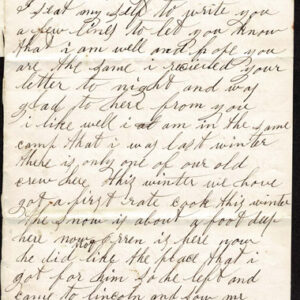 I seat my self to write you
a few lines to let you know
that i am well and hope you
are the same i recieled your
letter to night and was
glad to here from you
i like well i am in the same
camp that i was last winter
there is only one of our old
crew here this winter we have
got a first rate cook this winter
the snow is about a foot deep
here now is here now
he did like the place that i
got for him so he left and
came to lincoln and saw me